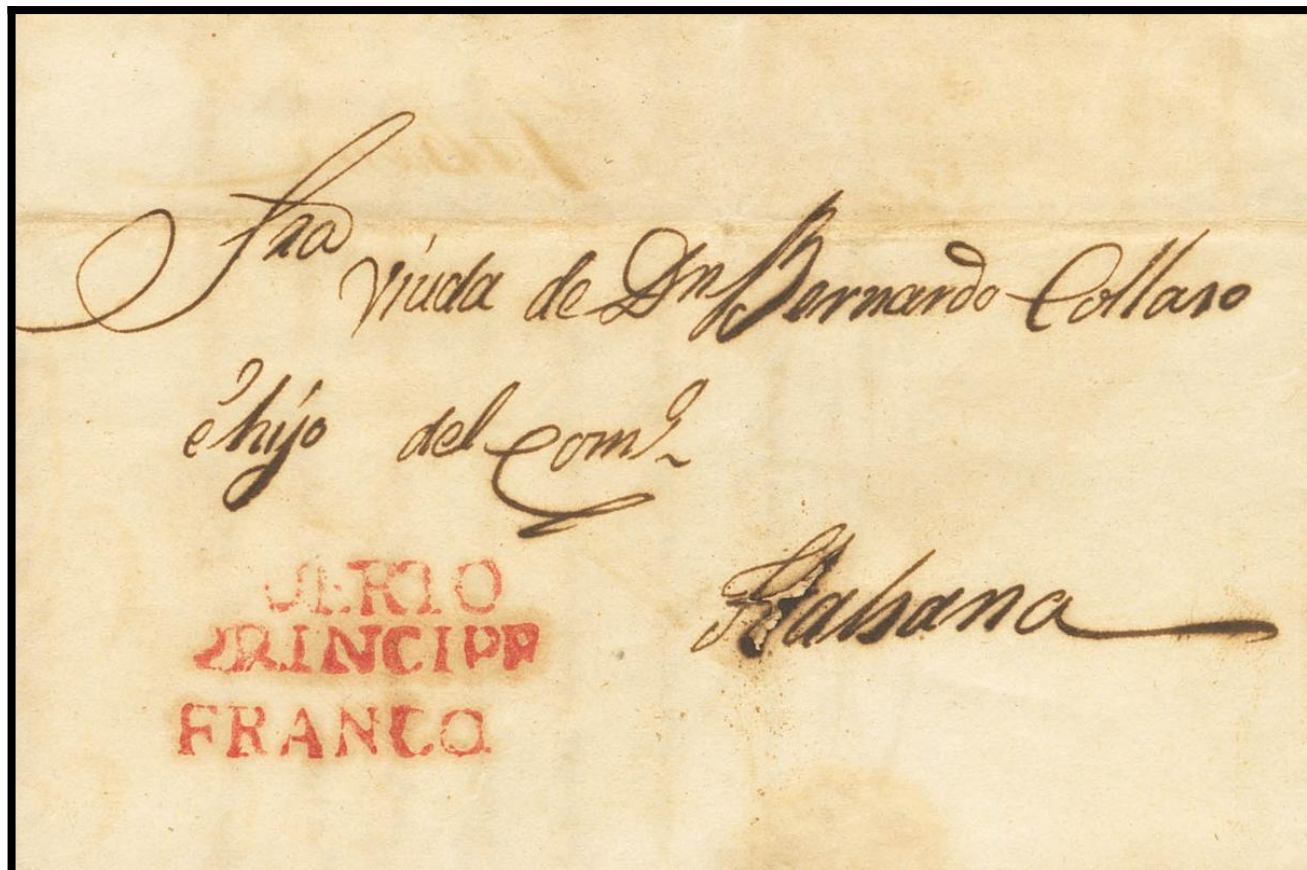 Sra
Viuda de Dn Bernardo Collaso
é hijo del Como
Habana
PUERTO
PRINCIPE
FRANCO.